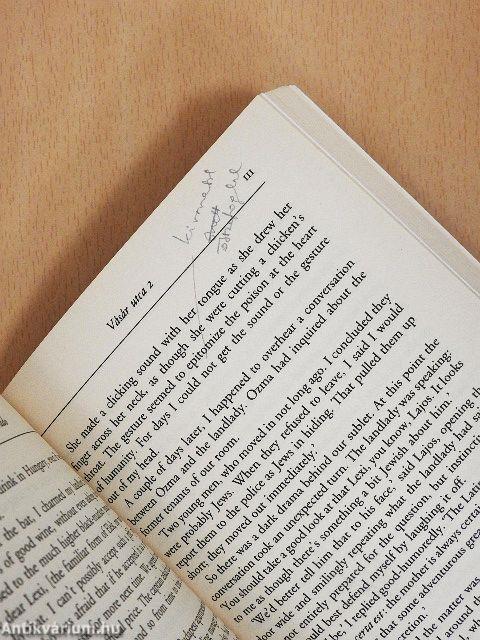 Vásár utca 2
III
kivonatol
She made a clicking sound with her tongue as she drew her
finger across her neck, as though she were cutting a chicken's
throat. The gesture seemed to epitomize the poison at the heart
of humanity. For days I could not get the sound or the gesture
out of my head.
A couple of days later, I happened to overhear a conversation
between Ozma and the landlady. Ozma had inquired about the
former tenants of our room.
'Two young men, who moved in not long ago. I concluded they
were probably Jews. When they refused to leave, I said I would
report them to the police as Jews in hiding. That pulled them up
short; they moved out immediately.'
So there was a dark drama behind our sublet. At this point the
conversation took an unexpected turn. The landlady was speaking.
'You should take a good look at that Lexi, you know, Lajos. It looks
to me as though there's something a bit Jewish about him.'
'We'd better tell him that to his face,' said Lajos, opening the
door wide and smilingly repeating what the landlady had
entirely prepared for the question, but
best defend myself by laughing it off.
I replied good-humouredly. 'The Latin
the mother is always certain
that some adventurous
matter was
drink in Hungary,
the bar, I charmed
of good wine, without even
to the much higher
dear Lexi, [the familiar form of
I can't possibly accept
afraid that if he accepted
more next time. We
price. The
so from time to
Antikvárium.hu